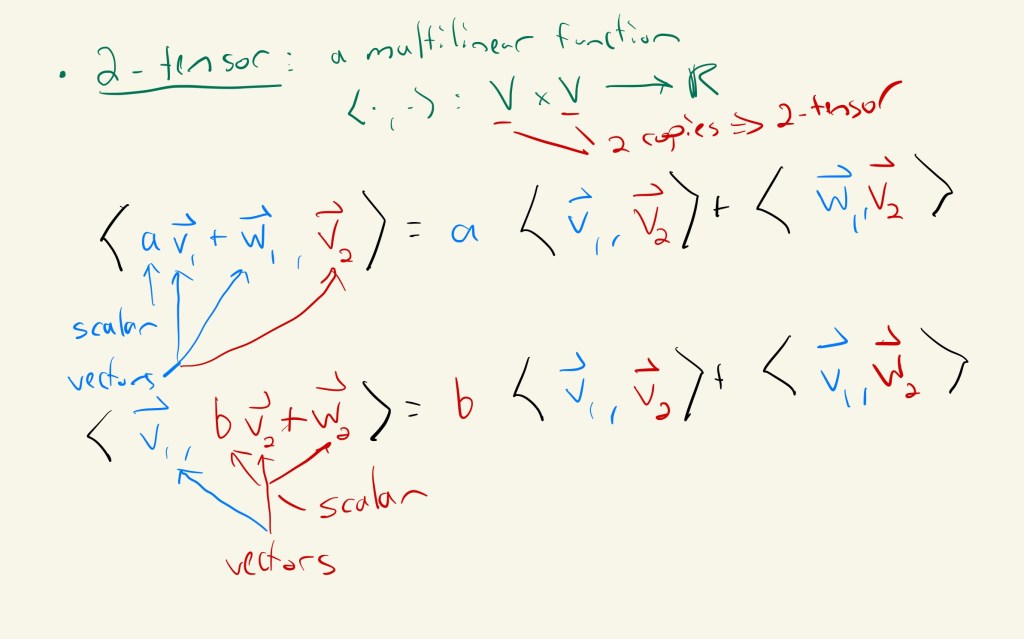 • 2-tensor: a multilinear function
⟨·,·⟩ : V × V ⟶ ℝ
2 copies ⇒ 2-tensor
⟨a v⃗₁ + w⃗₁, v⃗₂⟩ = a ⟨v⃗₁, v⃗₂⟩ + ⟨w⃗₁, v⃗₂⟩
scalar
vectors
⟨v⃗₁, b v⃗₂ + w⃗₂⟩ = b ⟨v⃗₁, v⃗₂⟩ + ⟨v⃗₁, w⃗₂⟩
scalar
vectors